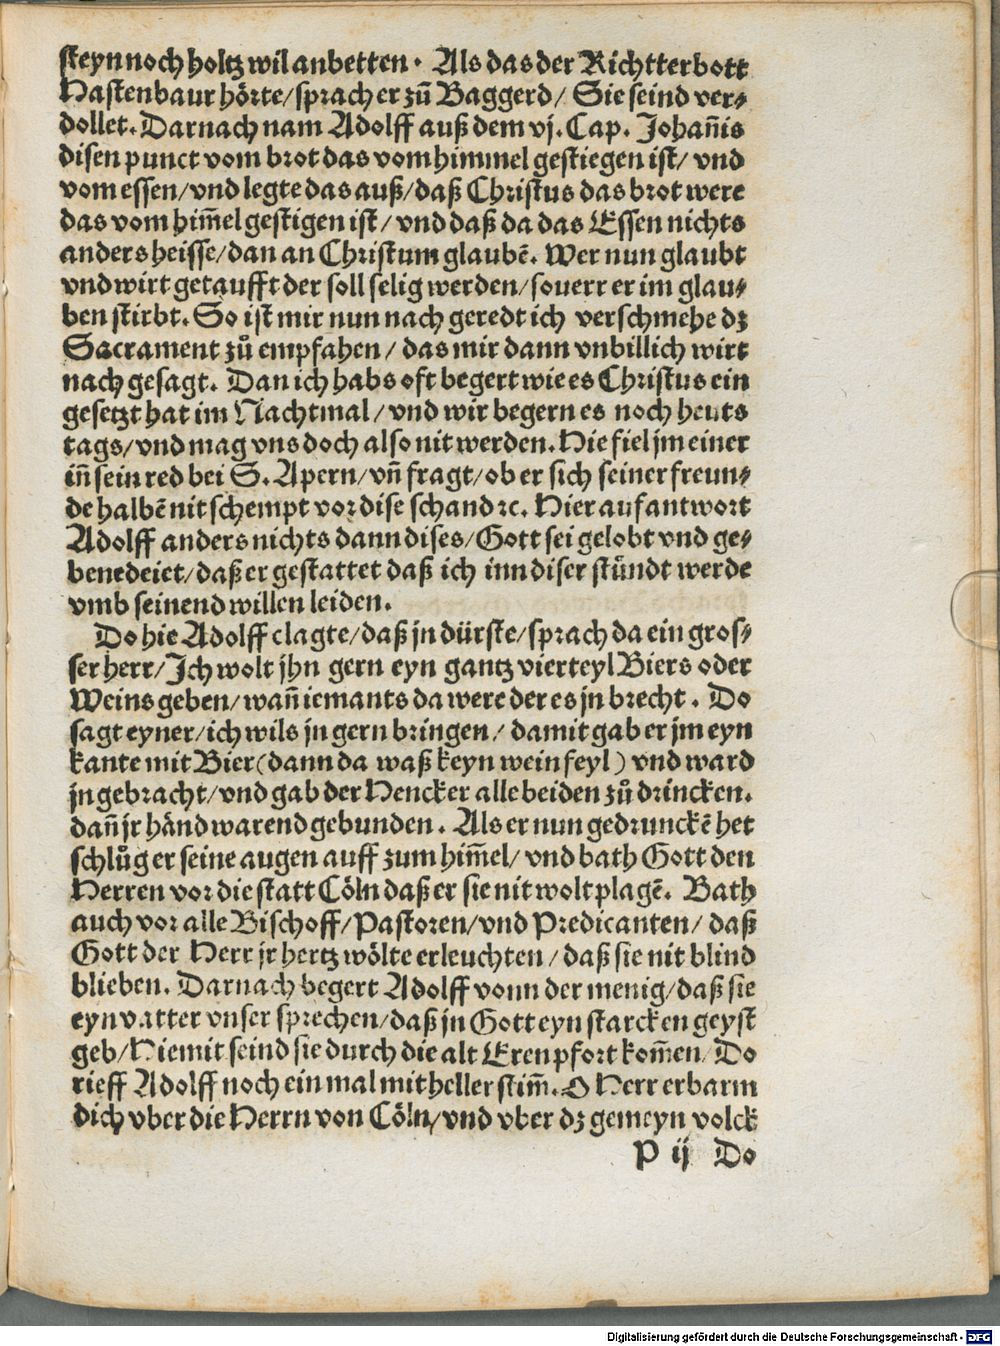 steyn noch holtz wil anbetten. Als das der Richtterbott
Hastenbaur hörte/sprach er zů Baggerd/ Sie seind ver⸗
dollet. Darnach nam Adolff auß dem vj. Cap. Johañis
disen punct vom brot das vom himmel gestiegen ist/ vnd
vom essen/vnd legte das auß/daß Christus das brot were
das vom him̃el gestigen ist/ vnd daß da das Essen nichts
anders heisse/dan an Christum glaubẽ. Wer nun glaubt
vnd wirt getaufft der soll selig werden/souerr er im glau⸗
ben stirbt. So ist mir nun nach geredt ich verschmehe dz
Sacrament zů empfahen/ das mir dann vnbillich wirt
nach gesagt. Dan ich habs oft begert wie es Christus ein
gesetzt hat im Nachtmal/ vnd wir begern es noch heuts
tags/vnd mag vns doch also nit werden. Hie fiel jm einer
iñ sein red bei S. Apern/vñ fragt/ob er sich seiner freun⸗
de halbẽ nit schempt vor dise schand ꝛc. Hier auf antwort
Adolff anders nichts dann dises/Gott sei gelobt vnd ge⸗
benedeiet/daß er gestattet daß ich inn diser stündt werde
vmb seinend willen leiden.
Do hie Adolff clagte/daß jn dürste/sprach da ein gros⸗
ser herr/Jch wolt jhn gern eyn gantz vierteyl Biers oder
Weins geben/wañ iemants da were der es jn brecht. Do
sagt eyner/ich wils jn gern bringen/ damit gab er jm eyn
kante mit Bier(dann da waß keyn wein feyl) vnd ward
jn gebracht/vnd gab der Hencker alle beiden zů drincken.
dañ jr händ warend gebunden. Als er nun gedrunckẽ het
schlůg er seine augen auff zum him̃el/ vnd bath Gott den
Herren vor die statt Cöln daß er sie nit wolt plagẽ. Bath
auch vor alle Bischoff/Pastoren/vnd Predicanten/ daß
Gott der Herr jr hertz wölte erleuchten/daß sie nit blind
blieben. Darnach begert Adolff vonn der menig/daß sie
eyn vatter vnser sprechen/daß jn Gott eyn starcken geyst
geb/Hiemit seind sie durch die alt Erenpfort kom̃en/ Do
rieff Adolff noch ein mal mit heller stim̃. O Herr erbarm
dich vber die Herrn von Cöln/vnd vber dz gemeyn volck
P ij Do
Digitalisierung gefördert durch die Deutsche Forschungsgemeinschaft - DFG